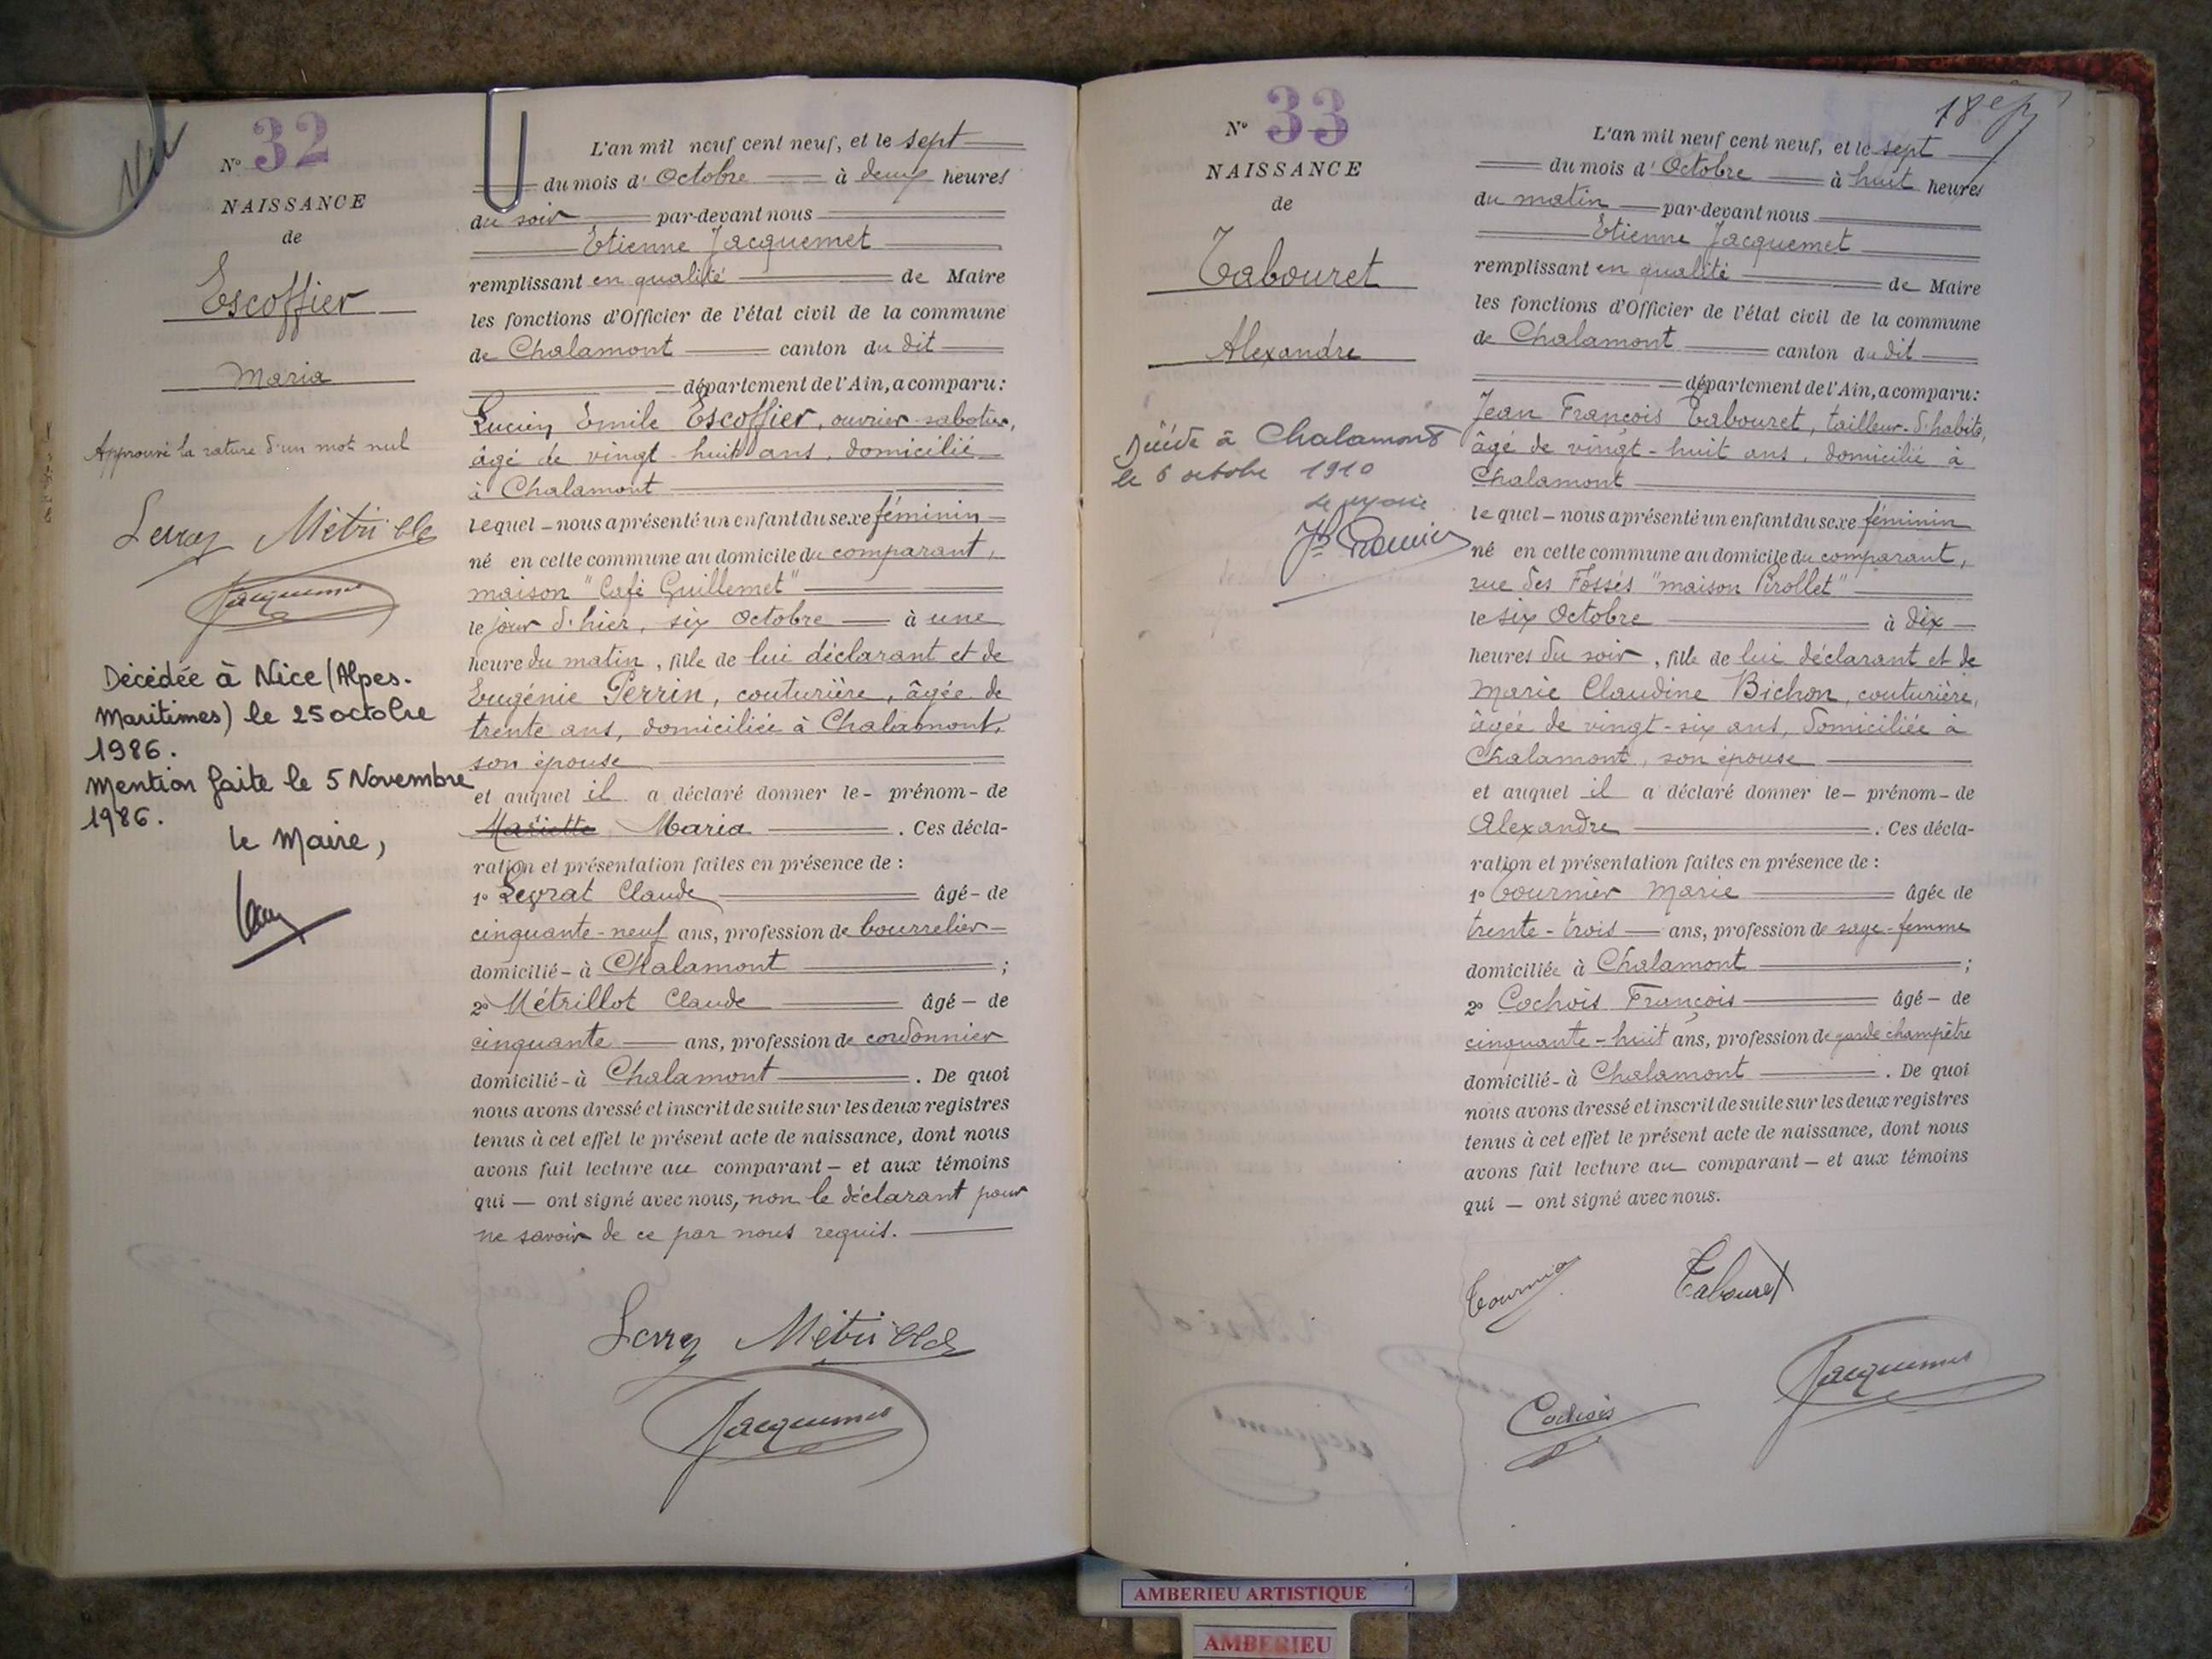 Nº 32
NAISSANCE
de
Escoffier
Maria
Approuvé la rature d'un mot nul
Jacquemet
Décédée à Nice (Alpes-
Maritimes) le 25 octobre
1986.
Mention faite le 5 Novembre
1986.
le Maire,
L'an mil neuf cent neuf, et le sept
du mois d' Octobre à deux heures
du soir par-devant nous
Etienne Jacquemet
remplissant en qualité de Maire
les fonctions d'Officier de l'état civil de la commune
de Chalamont canton du dit
département de l'Ain, a comparu :
Lucien Emile Escoffier, ouvrier sabotier,
âgé de vingt-huit ans, domicilié
à Chalamont
lequel - nous a présenté un enfant du sexe féminin
né en cette commune au domicile du comparant,
maison "Café Guillemet"
le jour d'hier, six Octobre à une
heure du matin, fille de lui déclarant et de
Eugénie Perrin, couturière, âgée de
trente ans, domiciliée à Chalamont,
son épouse
et auquel il a déclaré donner le - prénom - de
Mariette Maria . Ces décla-
ration et présentation faites en présence de :
1º Leyrat Claude âgé - de
cinquante-neuf ans, profession de bourrelier
domicilié - à Chalamont ;
2º Métrillot Claude âgé - de
cinquante ans, profession de cordonnier
domicilié - à Chalamont . De quoi
nous avons dressé et inscrit de suite sur les deux registres
tenus à cet effet le présent acte de naissance, dont nous
avons fait lecture au comparant - et aux témoins
qui - ont signé avec nous, non le déclarant pour
ne savoir de ce par nous requis.
Jacquemet
18e
Nº 33
NAISSANCE
de
Tabouret
Alexandre
Décédé à Chalamont
le 6 octobre 1910
L'an mil neuf cent neuf, et le sept
du mois d' Octobre à huit heures
du matin par-devant nous
Etienne Jacquemet
remplissant en qualité de Maire
les fonctions d'Officier de l'état civil de la commune
de Chalamont canton du dit
département de l'Ain, a comparu :
Jean François Tabouret, tailleur d'habits,
âgé de vingt-huit ans, domicilié à
Chalamont
lequel - nous a présenté un enfant du sexe féminin
né en cette commune au domicile du comparant,
rue des Fossés "maison Pirollet"
le six Octobre à dix
heures du soir, fille de lui déclarant et de
Marie Claudine Bichon, couturière,
âgée de vingt-six ans, domiciliée à
Chalamont, son épouse
et auquel il a déclaré donner le - prénom - de
Alexandre . Ces décla-
ration et présentation faites en présence de :
1º Tournier Marie âgée de
trente-trois ans, profession de sage-femme
domiciliée à Chalamont ;
2º Cochois François âgé - de
cinquante-huit ans, profession de garde champêtre
domicilié - à Chalamont . De quoi
nous avons dressé et inscrit de suite sur les deux registres
tenus à cet effet le présent acte de naissance, dont nous
avons fait lecture au comparant - et aux témoins
qui - ont signé avec nous.
Tournier Tabouret
Cochois Jacquemet
AMBERIEU ARTISTIQUE
AMBERIEU